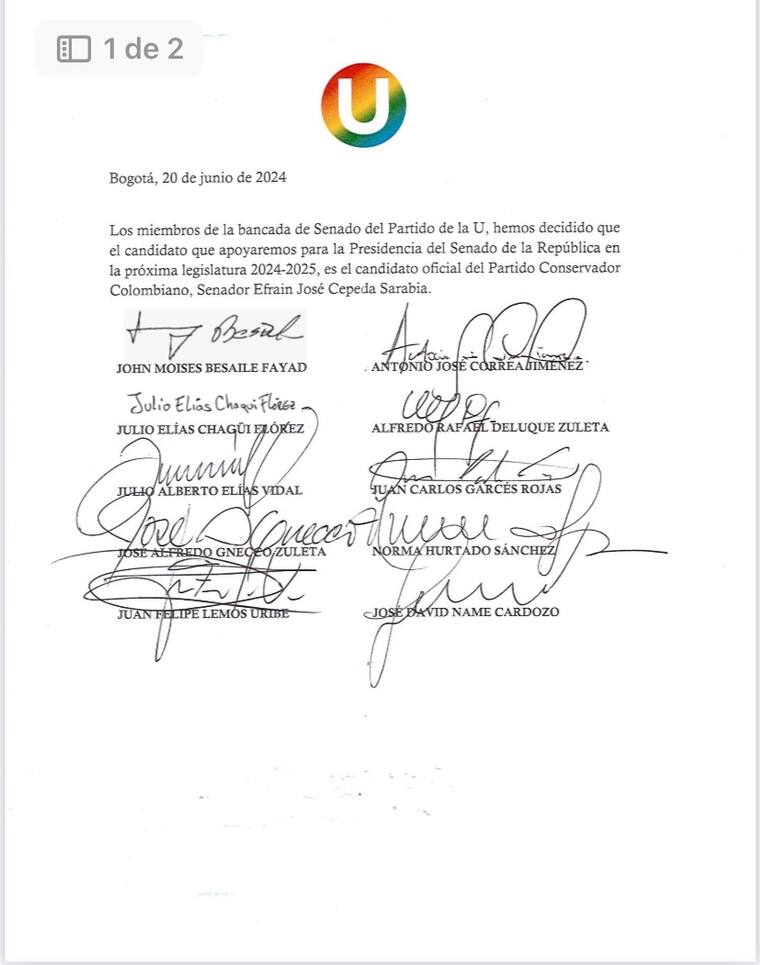 1 de 2
U
Bogotá, 20 de junio de 2024
Los miembros de la bancada de Senado del Partido de la U, hemos decidido que
el candidato que apoyaremos para la Presidencia del Senado de la República en
la próxima legislatura 2024-2025, es el candidato oficial del Partido Conservador
Colombiano, Senador Efrain José Cepeda Sarabia.
Besaile
JOHN MOISES BESAILE FAYAD
ANTONIO JOSÉ CORREA JIMÉNEZ
Julio Elías Chagui Flórez
JULIO ELÍAS CHAGÜI FLÓREZ
ALFREDO RAFAEL DELUQUE ZULETA
JULIO ALBERTO ELÍAS VIDAL
JUAN CARLOS GARCÉS ROJAS
José A Gnecco
JOSÉ ALFREDO GNECCO ZULETA
NORMA HURTADO SÁNCHEZ
JUAN FELIPE LEMOS URIBE
JOSÉ DAVID NAME CARDOZO